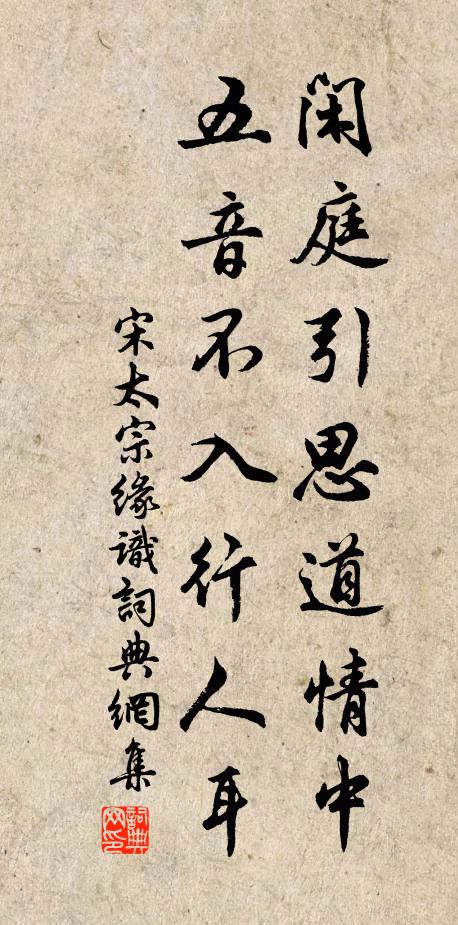 閑庭引思道情中
五音不入行人耳
宋太宗緣識詞典網集
詞典網印